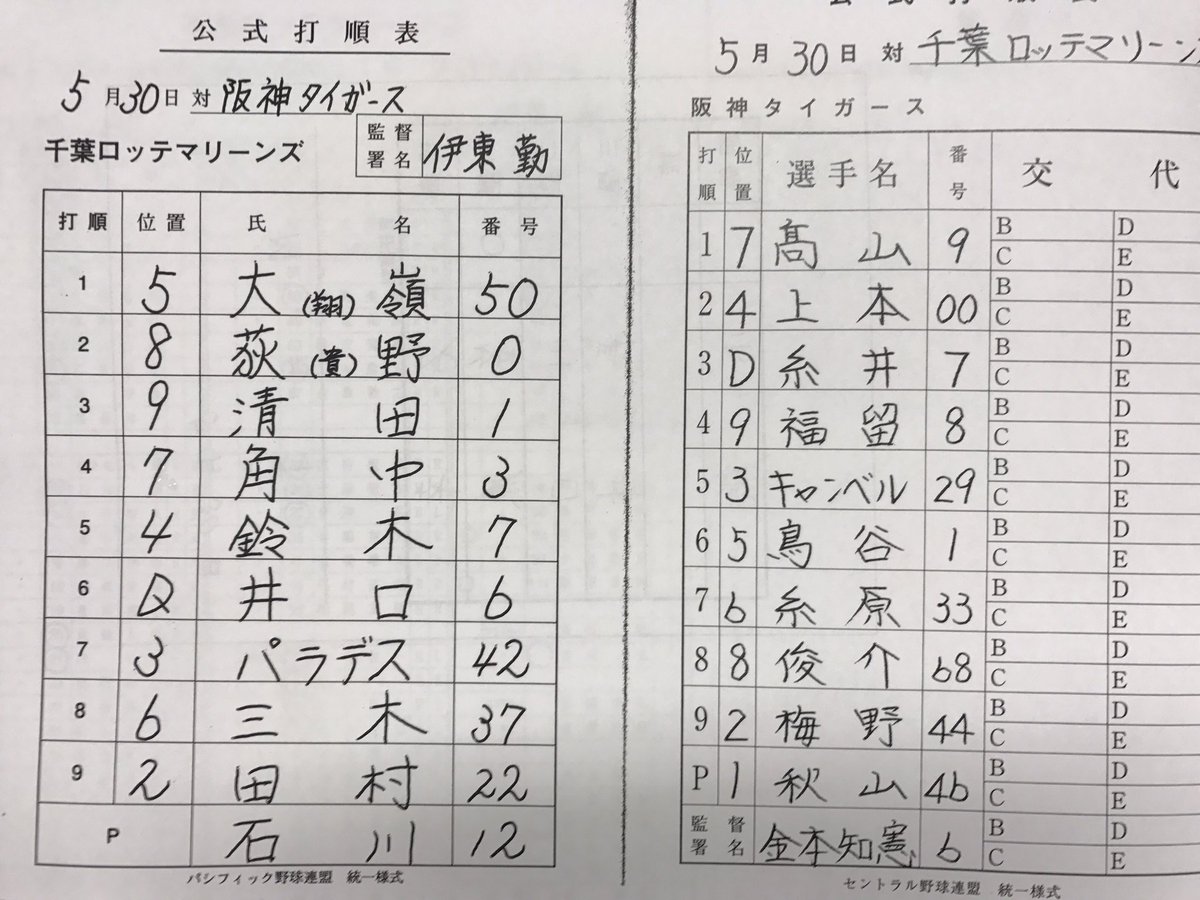 公式打順表
5月30日 対 阪神タイガース
千葉ロッテマリーンズ 監督署名 伊東 勤
打順 位置 氏名 番号
1 5 大(翔)嶺 50
2 8 荻(貴)野 0
3 9 清田 1
4 7 角中 3
5 4 鈴木 7
6 D 井口 6
7 3 パラデス 42
8 6 三木 37
9 2 田村 22
P 石川 12
パシフィック野球連盟 統一様式
公式打順表
5月30日 対 千葉ロッテマリーンズ
阪神タイガース
打順 位置 選手名 番号 交代
1 7 髙山 9 B D C E
2 4 上本 00 B D C E
3 D 糸井 7 B D C E
4 9 福留 8 B D C E
5 3 キャンベル 29 B D C E
6 5 鳥谷 1 B D C E
7 6 糸原 33 B D C E
8 8 俊介 68 B D C E
9 2 梅野 44 B D C E
P 1 秋山 46 B D C E
監督署名 金本知憲 6 B D C E
セントラル野球連盟 統一様式